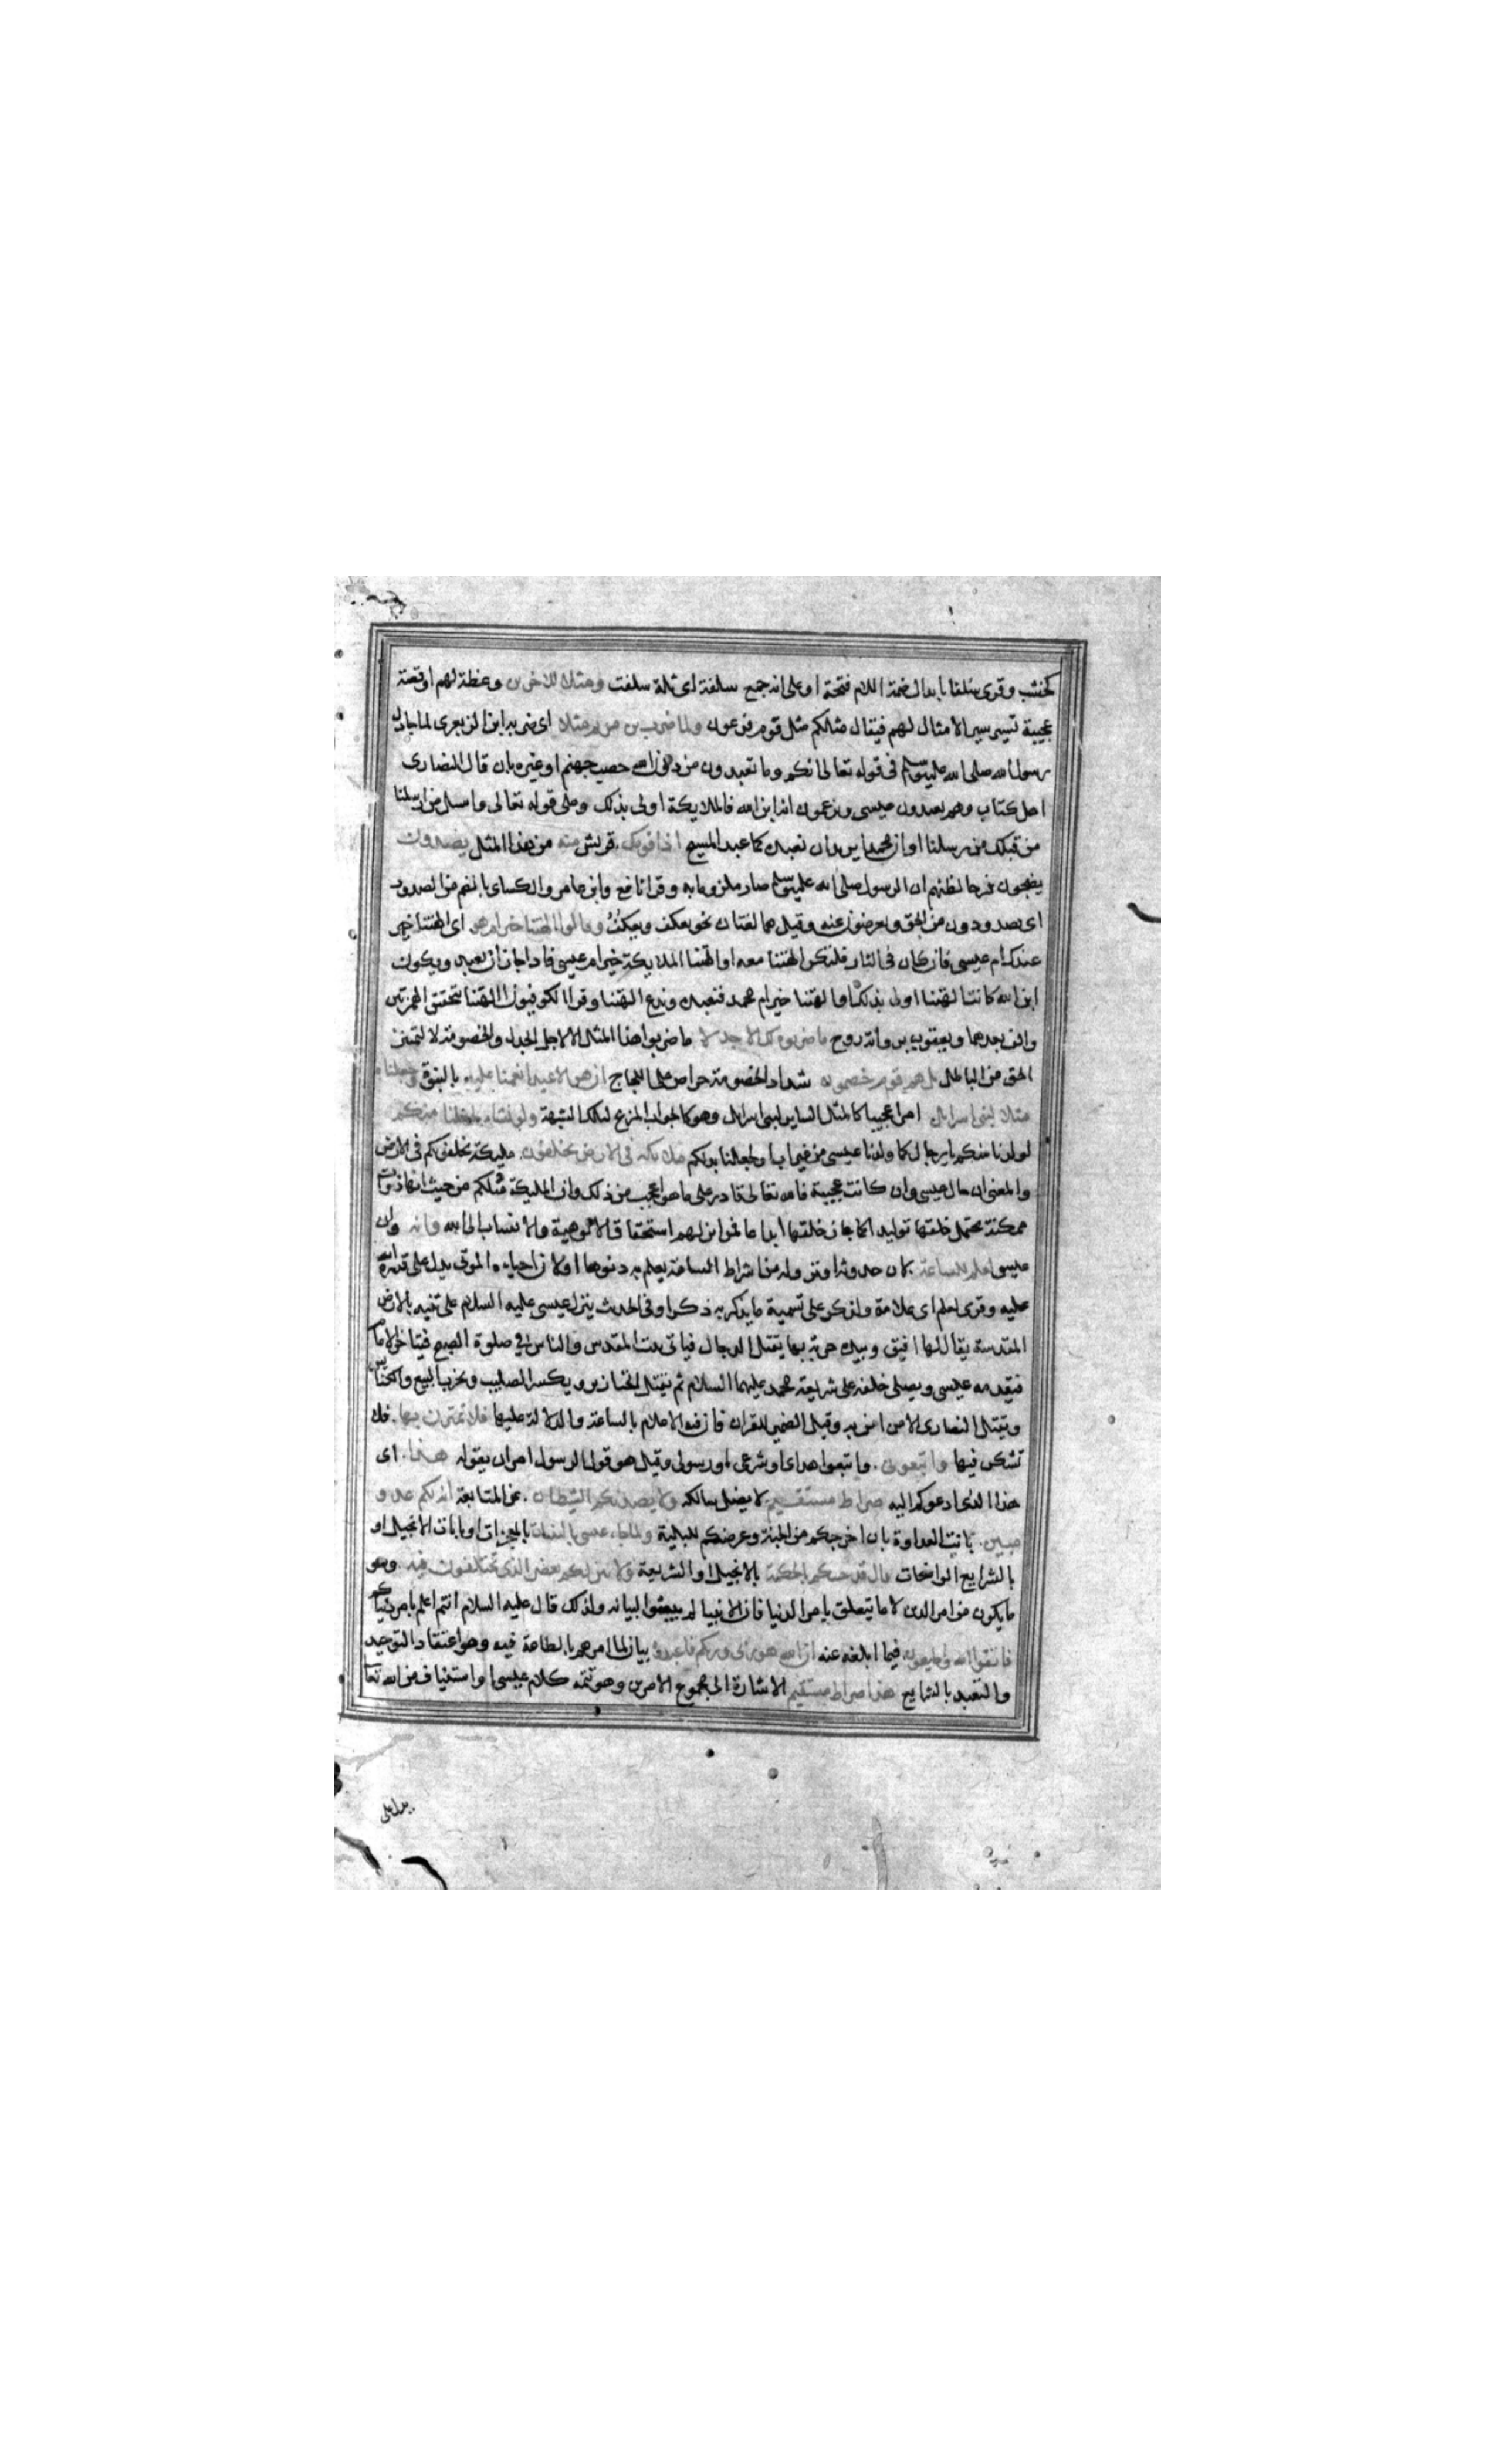 كخشب وقرى سلفا بابدال ضمة اللام فتحة او على انه جمع سلفة اى ثلة سلفت ومثلا للاخرين وعظة لهم او قصة
عجيبة تسير مسير الامثال لهم فيقال مثلكم مثل قوم فرعون ولما ضرب بن مريم مثلا اى ضربه ابن الزبعرى لما جادل
رسول الله صلى الله عليه وسلم فى قوله تعالى انكم وما تعبدون من دون الله حصب جهنم او غيره بان قال النصارى
اهل كتاب وهم يعبدون عيسى ويزعمون انه ابن الله فالملايكة اولى بذلك وعلى قوله تعالى واسل من ارسلنا
من قبلك من رسلنا او ان محمدا يريد ان نعبده كما عبد المسيح اذا قومك قريش منه من هذا المثل يصدون
يضجون فرحا لظنهم ان الرسول صلى الله عليه وسلم صار ملزوما به وقرا نافع وابن عامر والكساى بالضم من الصدود
اى يصدون عن الحق ويعرضون عنه وقيل هما لغتان نحو يعكف ويعكف وقالوا االهتنا خير ام هو اى االهتنا خير
عندك ام عيسى فان كان فى النار فلتكن الهتنا معه او الهتنا الملايكة خير ام عيسى فاذا جاز ان يعبد ويكون
ابن الله كانت الهتنا اولى بذلك او الهتنا خير ام محمد فنعبده وندع الهتنا وقرا الكوفيون االهتنا بتحقيق الهمزتين
والف بعدهما ويعقوب برواية روح ما ضربوه لك الا جدلا ما ضربوا هذا المثل الا لاجل الجدل والخصومة لا لتمييز
الحق من الباطل بل هم قوم خصمون شداد الخصومة حراص على اللجاج ان هو الا عبد انعمنا عليه بالنبوة وجعلناه
مثلا لبنى اسرايل امرا عجيبا كالمثل الساير لبنى اسرايل وهو كالجواب المزيح لتلك الشبهة ولو نشاء لجعلنا منكم
لولدنا منكم يا رجال كما ولدنا عيسى من غير اب او لجعلنا بدلكم ملايكة فى الارض يخلفون مليكة يخلفونكم فى الارض
والمعنى ان حال عيسى وان كانت عجيبة فالله تعالى قادر على ما هو اعجب من ذلك وان المليكة مثلكم من حيث انها ذوات
ممكنة يحتمل خلقها توليدا كما جاز خلقها ابداعا فمن اين لهم استحقاق الالوهية والانتساب الى الله وانه وان
عيسى لعلم للساعة لان حدوثه او نزوله من اشراط الساعة يعلم به دنوها او لان احياء الموتى يدل على قدرة الله
عليه وقرى لعلم اى علامة ولذكر على تسمية ما يذكر به ذكرا وفى الحديث ينزل عيسى عليه السلام على ثنية بالارض
المقدسة يقال لها افيق وبيده حربة بها يقتل الدجال فياتى بيت المقدس والناس فى صلوة الصبح فيتاخر الامام
فيقدمه عيسى ويصلى خلفه على شريعة محمد عليهما السلام ثم يقتل الخنازير ويكسر الصليب ويخرب البيع والكنايس
ويقتل النصارى الا من امن به وقيل الضمير للقران فان فيه الاعلام بالساعة والدلالة عليها فلا تمترن بها فلا
تشكن فيها واتبعون واتبعوا هداى او شرعى او رسولى وقيل هو قول الرسول امر ان يقوله هذا اى
هذا الذى ادعوكم اليه صراط مستقيم لا يضل سالكه ولا يصدنكم الشيطان عن المتابعة انه لكم عدو
مبين بانت العداوة بان اخرجكم من الجنة وعرضكم للبلية ولما جاء عيسى بالبينات بالمعجزات او بايات الانجيل او
بالشرايع الواضحات قال قد جيتكم بالحكمة بالانجيل او الشريعة ولابين لكم بعض الذى تختلفون فيه وهو
ما يكون من امر الدين لا ما يتعلق بامر الدنيا فان الانبيا لم يبعثوا لبيانه ولذلك قال عليه السلام انتم اعلم بامر دنياكم
فاتقوا الله واطيعون فيما ابلغه عنه ان الله هو ربى وربكم فاعبدوه بيان لما امرهم بالطاعة فيه وهو اعتقاد التوحيد
والتعبد بالشرايع هذا صراط مستقيم الاشارة الى مجموع الامرين وهو تتمة كلام عيسى او استيناف من الله تعا